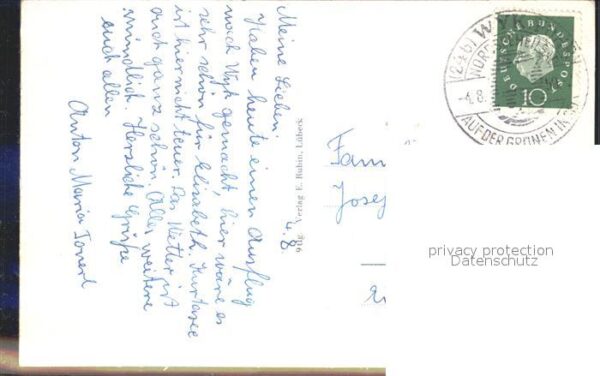 Meine Lieben! 4.8.
Haben heute einen Ausflug
nach Wyk gemacht, hier wäre es
sehr schön für Elisabeth. Kurtaxe
ist hier nicht teuer. Das Wetter ist
auch ganz schön. Alles weitere
mündlich Herzliche Grüße
euch allen
Anton Maria
9 Hg. Verlag E. Rubin, Lübeck
Fam
Josef
(24b) WYK
NORD
-4.8.
AUF DER GRÜNEN INSEL
DEUTSCHE BUNDESPOST
10
privacy protection
Datenschutz